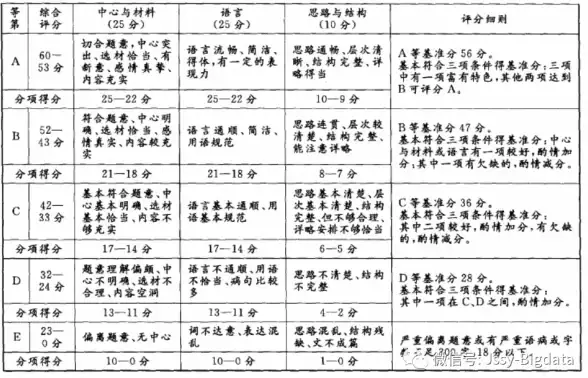 等第
综合评分
中心与材料
(25分)
语言
(25分)
思路与结构
(10分)
评分细则
A
60—
53分
切合题意,中心突
出、选材恰当、有
新意、感情真挚、
内容充实
语言流畅、简洁、
得体,有一定的表
现力
思路通畅、层次清
晰、结构完整、详
略得当
A等基准分56分。
基本符合三项条件得基准分;三项
中有一项富有特色,其他两项达到
B可评分A。
分项得分
25—22分
25—22分
10—9分
B
52—
43分
符合题意、中心明
确、选材恰当、感
情真实、内容较充
实
语言通顺、简洁、
用语规范
思路连贯、层次较
清楚、结构完整、
能注意详略
B等基准分47分。
基本符合三项条件得基准分;中心
与材料或语言有一项较好,酌情加
分;其中一项有欠缺的,酌情减分。
分项得分
21—18分
21—18分
8—7分
C
42—
33分
基本符合题意、中
心基本明确、选材
基本恰当、内容不
够充实
语言基本通顺、用
语基本规范
思路基本清楚、层
次基本清楚、结构
完整、但不够合理、
详略安排不够恰当
C等基准分36分。
基本符合三项条件得基准分;
其中二项较好,酌情加分,有欠缺
的,酌情减分。
分项得分
17—14分
17—14分
6—5分
D
32—
24分
题意理解偏颇、中
心不明确、选材不
合理、内容空洞
语言不通顺、用语
不恰当、病句比较
多
思路不清楚、结构
不完整
D等基准分28分。
基本符合三项条件得基准分;
其中一项在C、D之间,酌情加分。
分项得分
13—11分
13—11分
4—2分
E
23—
0分
偏离题意、无中心
词不达意、表达混
乱
思路混乱、结构残
缺、文不成篇
严重偏离题意或有严重语病或字
00字,18分以下。
分项得分
10—0分
10—0分
1—0分
微信号: Jssy-Bigdata